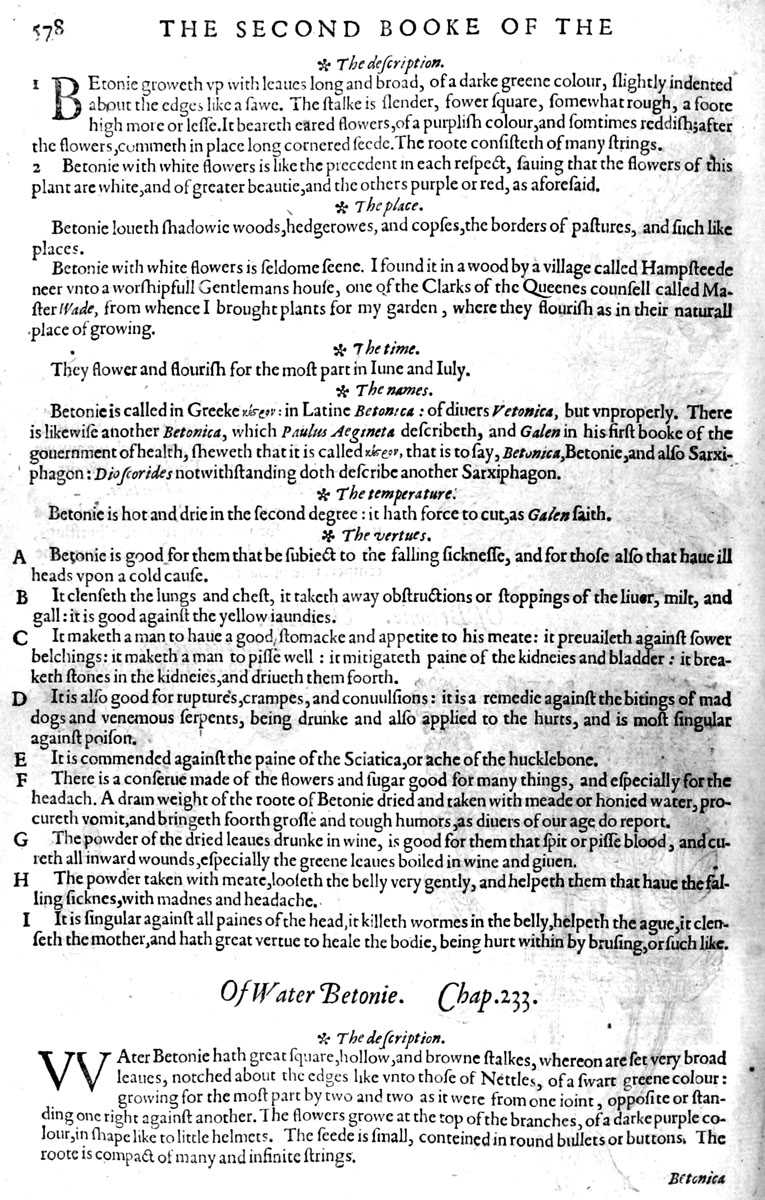 578 THE SECOND BOOKE OF THE
❧ The deſcription.
1 BEtonie groweth vp with leaues long and broad, of a darke greene colour, ſlightly indented
about the edges like a ſawe. The ſtalke is ſlender, fower ſquare, ſomewhat rough, a foote
high more or leſſe. It beareth eared flowers, of a purpliſh colour, and ſomtimes reddiſh; after
the flowers, commeth in place long cornered ſeede. The roote conſiſteth of many ſtrings.
2 Betonie with white flowers is like the precedent in each reſpect, ſauing that the flowers of this
plant are white, and of greater beautie, and the others purple or red, as aforeſaid.
❧ The place.
Betonie loueth ſhadowie woods, hedgerowes, and copſes, the borders of paſtures, and ſuch like
places.
Betonie with white flowers is ſeldome ſeene. I found it in a wood by a village called Hampſteede
neer vnto a worſhipfull Gentlemans houſe, one of the Clarks of the Queenes counſell called Ma-
ſter Wade, from whence I brought plants for my garden, where they flouriſh as in their naturall
place of growing.
❧ The time.
They flower and flouriſh for the moſt part in Iune and Iuly.
❧ The names.
Betonie is called in Greeke : in Latine Betonica: of diuers Vetonica, but vnproperly. There
is likewiſe another Betonica, which Paulus Aegineta deſcribeth, and Galen in his firſt booke of the
gouernment of health, ſheweth that it is called , that is to ſay, Betonica, Betonie, and alſo Sarxi-
phagon: Dioſcorides notwithſtanding doth deſcribe another Sarxiphagon.
❧ The temperature.
Betonie is hot and drie in the ſecond degree: it hath force to cut, as Galen ſaith.
❧ The vertues.
A Betonie is good for them that be ſubiect to the falling ſickneſſe, and for thoſe alſo that haue ill
heads vpon a cold cauſe.
B It clenſeth the lungs and cheſt, it taketh away obſtructions or ſtoppings of the liuer, milt, and
gall: it is good againſt the yellow iaundies.
C It maketh a man to haue a good ſtomacke and appetite to his meate: it preuaileth againſt ſower
belchings: it maketh a man to piſſe well: it mitigateth paine of the kidneies and bladder: it brea-
keth ſtones in the kidneies, and driueth them foorth.
D It is alſo good for ruptures, crampes, and conuulſions: it is a remedie againſt the bitings of mad
dogs and venemous ſerpents, being drunke and alſo applied to the hurts, and is moſt ſingular
againſt poiſon.
E It is commended againſt the paine of the Sciatica, or ache of the hucklebone.
F There is a conſerue made of the flowers and ſugar good for many things, and eſpecially for the
headach. A dram weight of the roote of Betonie dried and taken with meade or honied water, pro-
cureth vomit, and bringeth foorth groſſe and tough humors, as diuers of our age do report.
G The powder of the dried leaues drunke in wine, is good for them that ſpit or piſſe blood, and cu-
reth all inward wounds, eſpecially the greene leaues boiled in wine and giuen.
H The powder taken with meate, looſeth the belly very gently, and helpeth them that haue the fal-
ling ſicknes, with madnes and headache.
I It is ſingular againſt all paines of the head, it killeth wormes in the belly, helpeth the ague, it clen-
ſeth the mother, and hath great vertue to heale the bodie, being hurt within by bruſing, or ſuch like.
Of Water Betonie. Chap. 233.
❧ The deſcription.
VVAter Betonie hath great ſquare, hollow, and browne ſtalkes, whereon are ſet very broad
leaues, notched about the edges like vnto thoſe of Nettles, of a ſwart greene colour:
growing for the moſt part by two and two as it were from one ioint, oppoſite or ſtan-
ding one right againſt another. The flowers growe at the top of the branches, of a darke purple co-
lour, in ſhape like to little helmets. The ſeede is ſmall, conteined in round bullets or buttons. The
roote is compact of many and infinite ſtrings.
Betonica